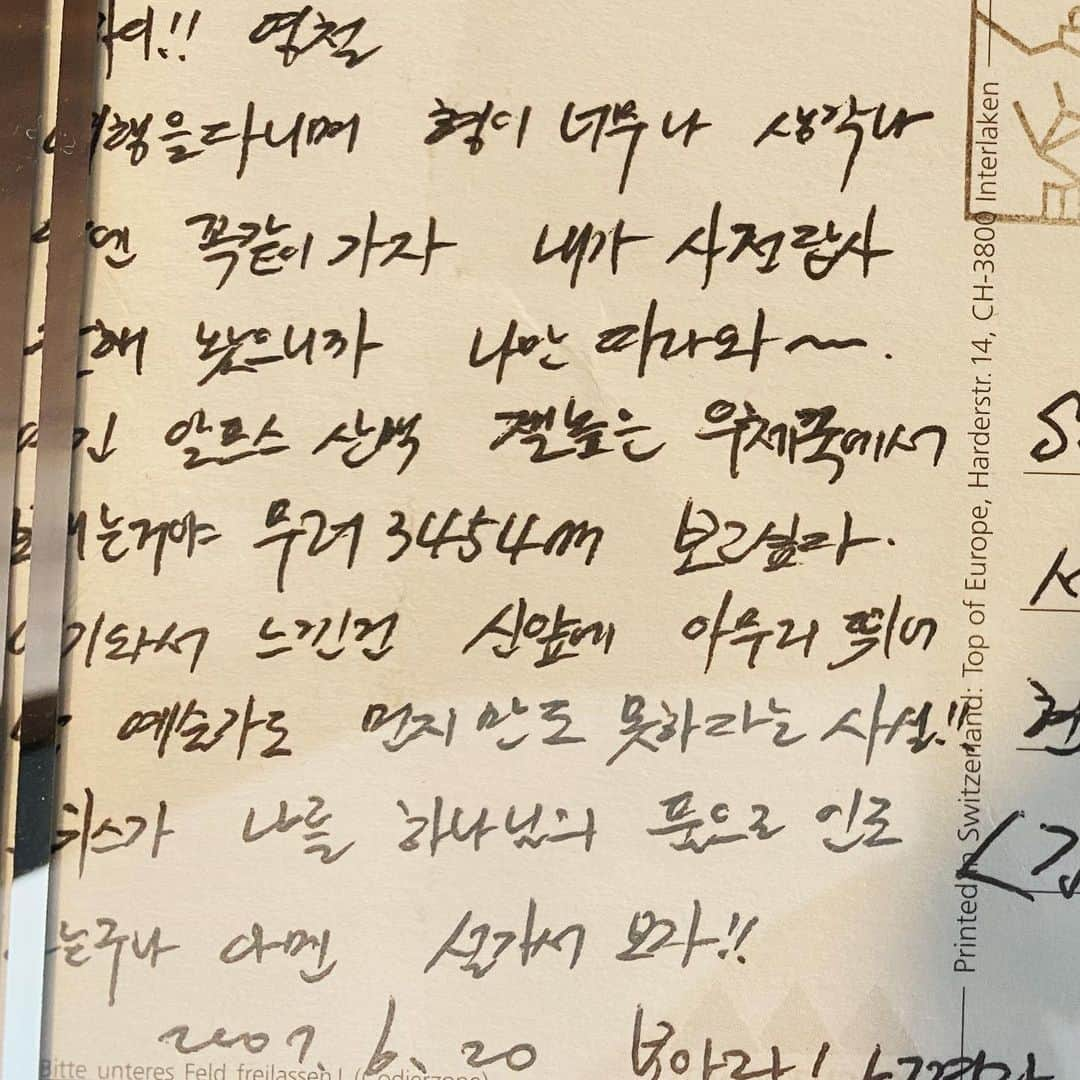 하이!! 영철
여행을다니며 형이 너무나 생각나
꼭같이 가자 내가 사전답사
해 놨으니까 나만 따라와~.
여긴 알프스 산맥 젤높은 우체국에서
보내는거야 무려 3454m 보고싶다.
여기와서 느낀건 신앞에 아무리 뛰어
난 예술가도 먼지 만도 못하다는 사실!!
스위스가 나를 하나님의 품으로 인도
하는구나 아멘 설가서 보자!!
2007. 6. 20
Bitte unteres Feld freilassen! (Codierzone)
Printed in Switzerland: Top of Europe, Harderstr. 14, CH-3800 Interlaken